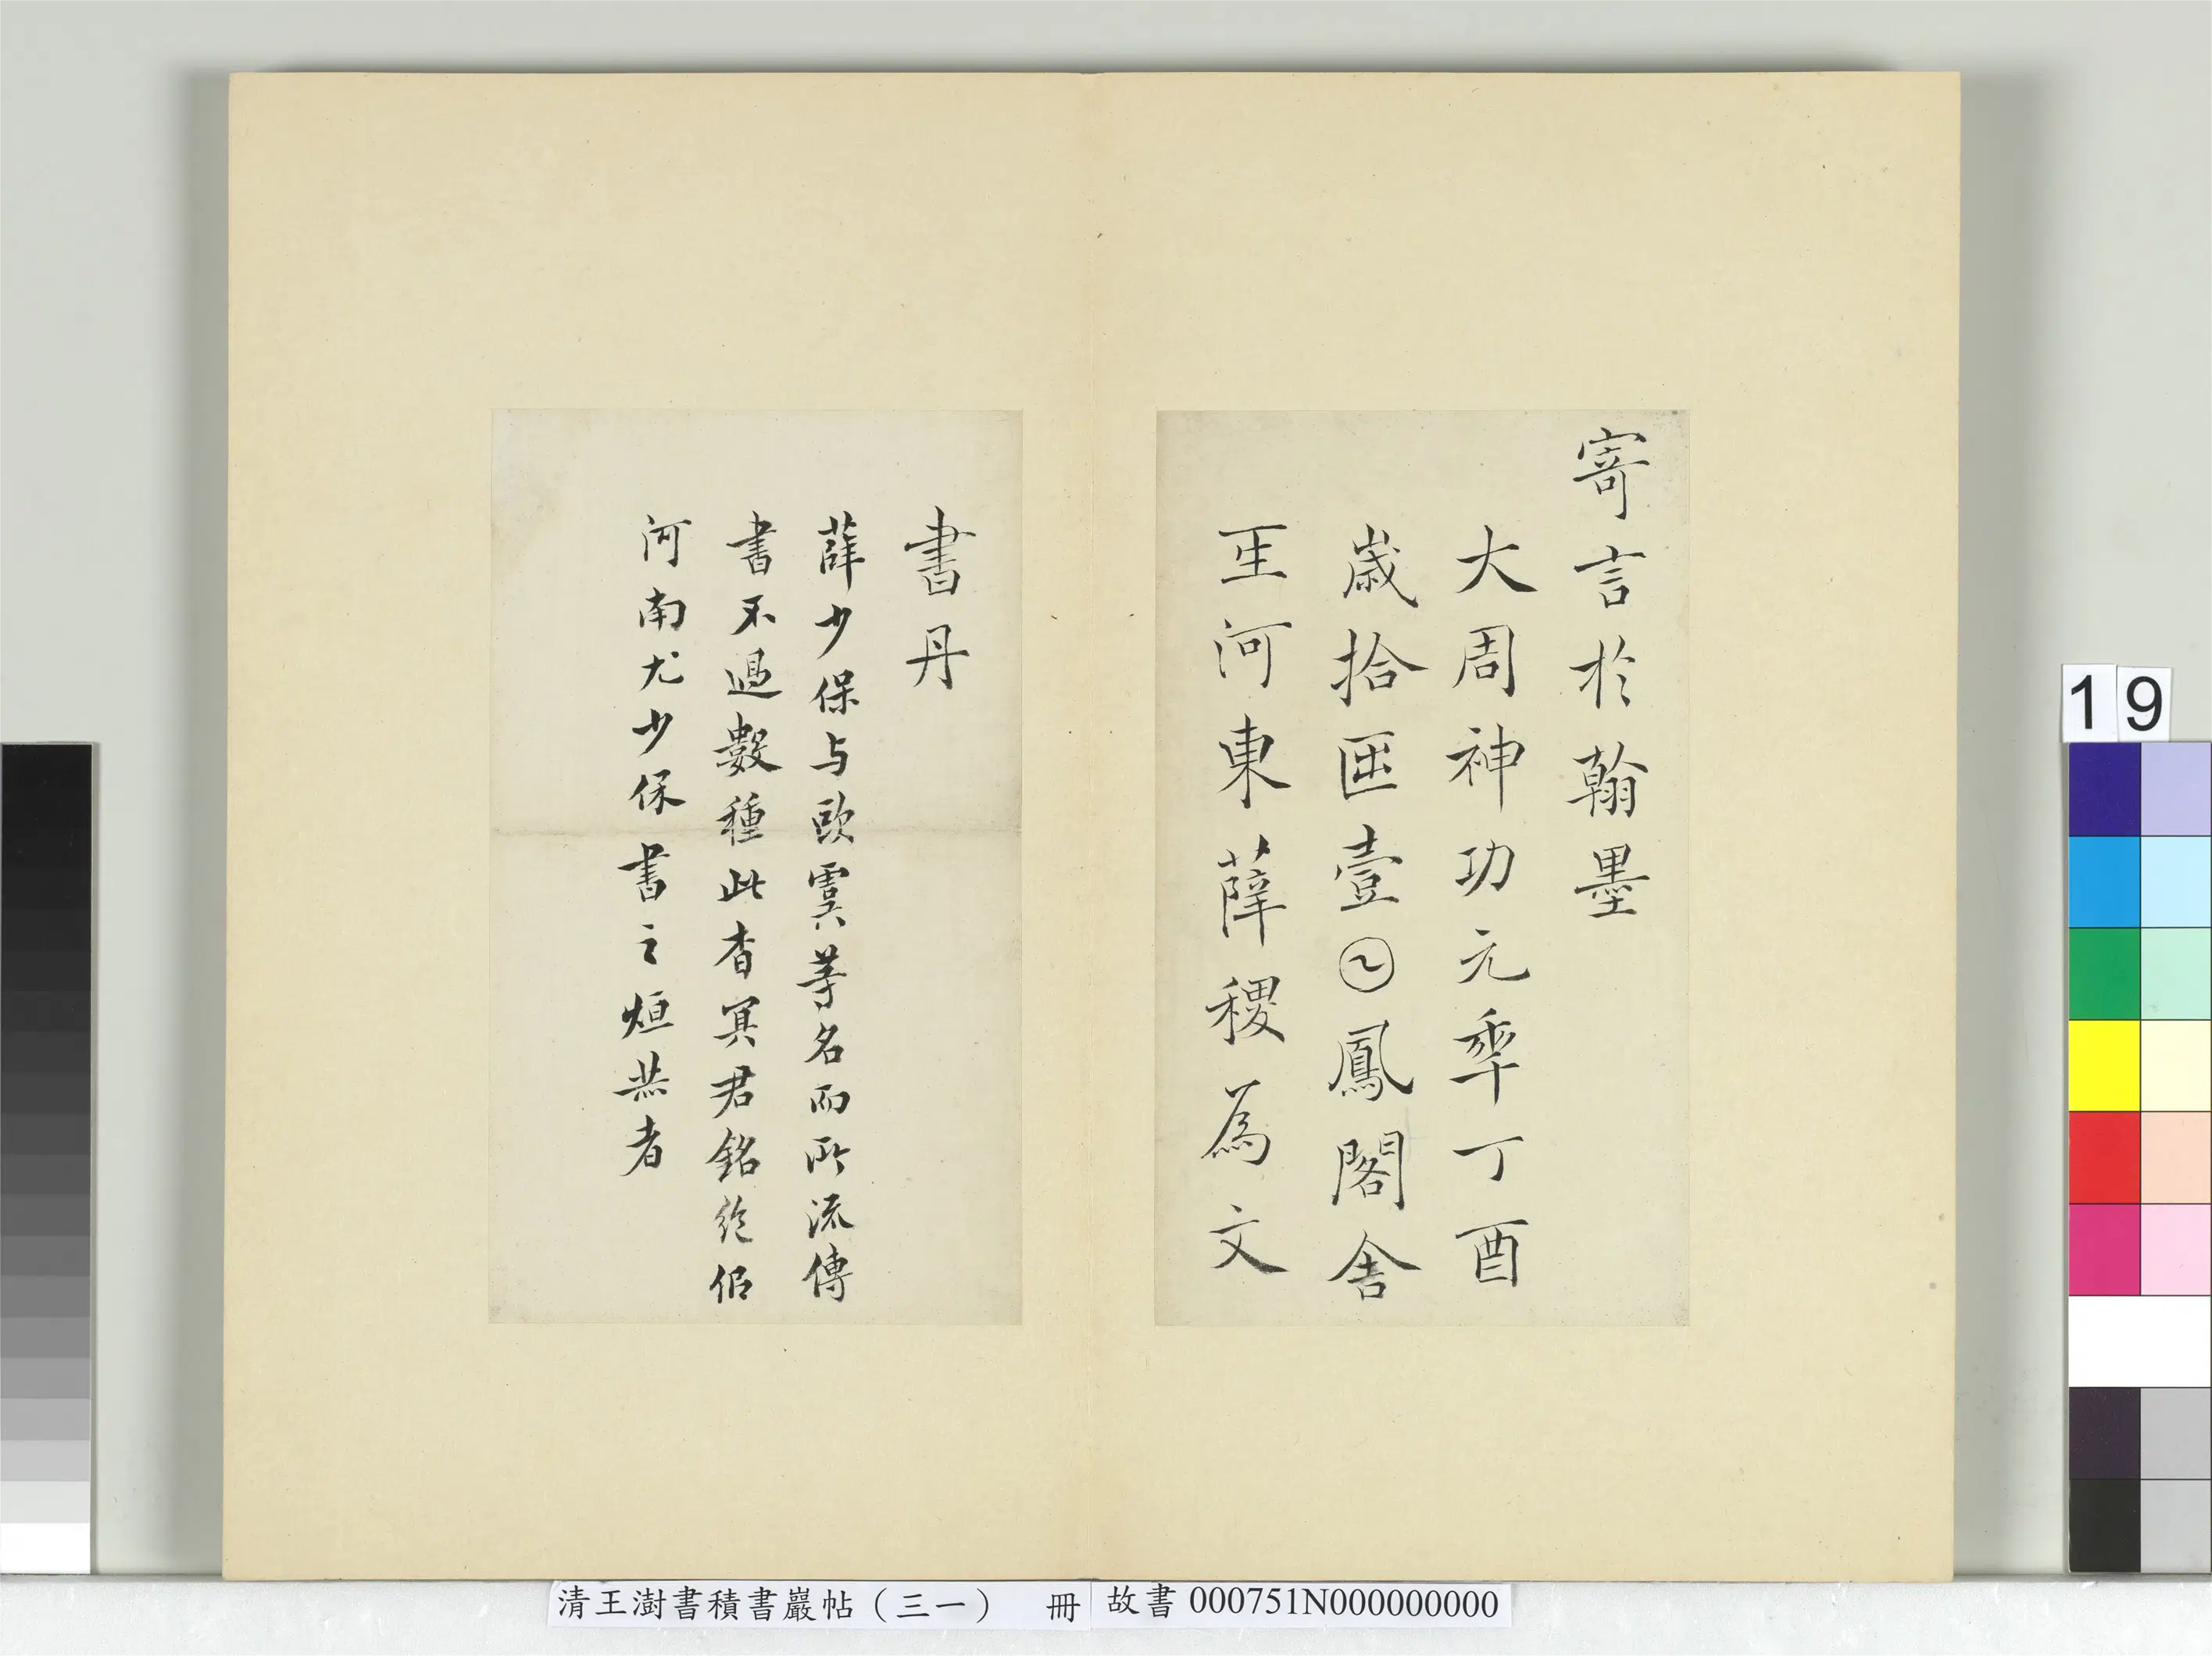 寄言於翰墨
大周神功元𠡦丁酉
歲拾𠥱壹𡆠鳳閣舍
𤯔河東薛稷為文
書丹
薛少保与歐虞等名而所流傳
書不過數種此杳冥君銘絶佀
河南尤少保書之烜赫者
19
清王澍書積書巖帖（三一） 冊 故書 000751N000000000